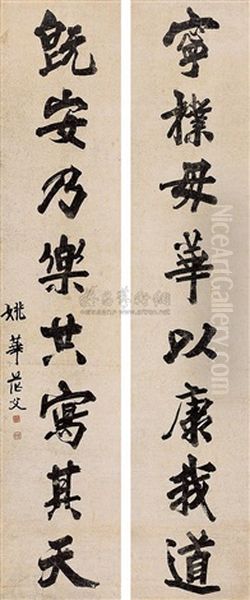 寧樸毋華以康我道
既安乃樂共寫其天
姚華茫父
NiceArtGallery.com